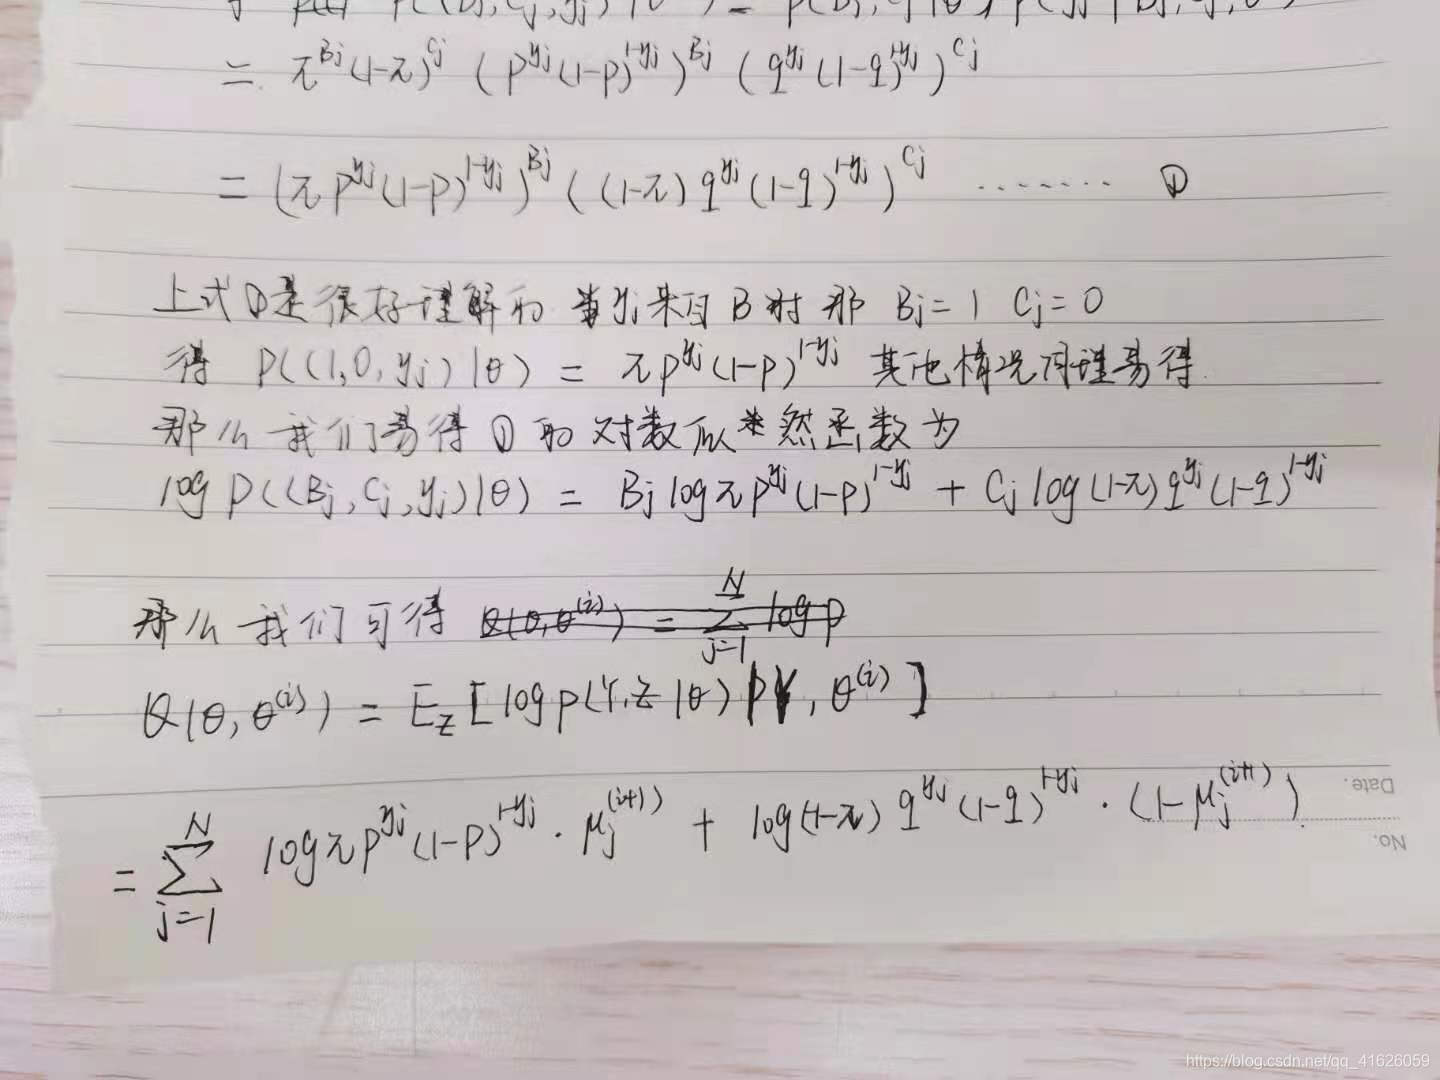 p((Bj,Cj,yj)|θ) = p(Bj,Cj|θ) p(yj|Bj,Cj,θ)
= π^Bj (1-π)^Cj (p^yj (1-p)^1-yj)^Bj (q^yj (1-q)^1-yj)^Cj
= (π p^yj (1-p)^1-yj)^Bj ((1-π) q^yj (1-q)^1-yj)^Cj ······· ①
上式①是很好理解的 当yj来自B时 那 Bj=1 Cj=0
得 P((1,0,yj)|θ) = π p^yj (1-p)^1-yj 其他情况同理易得.
那么我们易得①的对数似然函数为
log P((Bj,Cj,yj)|θ) = Bj log π p^yj (1-p)^1-yj + Cj log (1-π) q^yj (1-q)^1-yj
那么我们可得 Q(θ,θ^(i)) = ∑_{j=1}^N log p
Q(θ,θ^(i)) = E_Z [log p(Y,Z|θ) | Y, θ^(i)]
= ∑_{j=1}^N log π p^yj (1-p)^1-yj · μj^(i+1) + log(1-π) q^yj (1-q)^1-yj · (1-μj^(i+1)).
Date.
No.
https://blog.csdn.net/qq_41626059